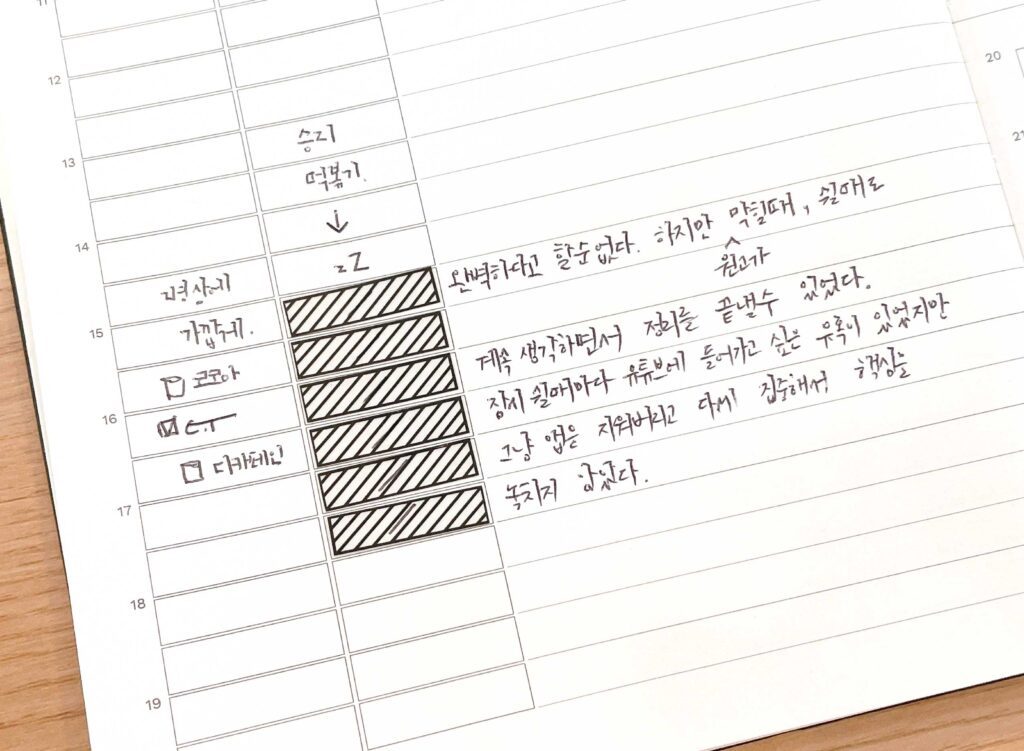 12
13
14
15
16
17
18
19
20
21
승리
떡볶기.
↓
zZ
가깝게.
코코아
E.T
디카페인
완벽하다고 할순없다. 하지만 막힐때, 쉴때로
원고가
계속 생각하면서 정리를 끝낼수 있었다.
잠시 쉴때마다 유튜브에 들어가고 싶은 유혹이 있었지만
그냥 앱은 지워버리고 다시 집중해서 핵심을
놓치지 않았다.